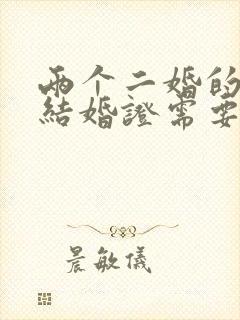 兩个二婚的
結婚證需要
晨敏儀